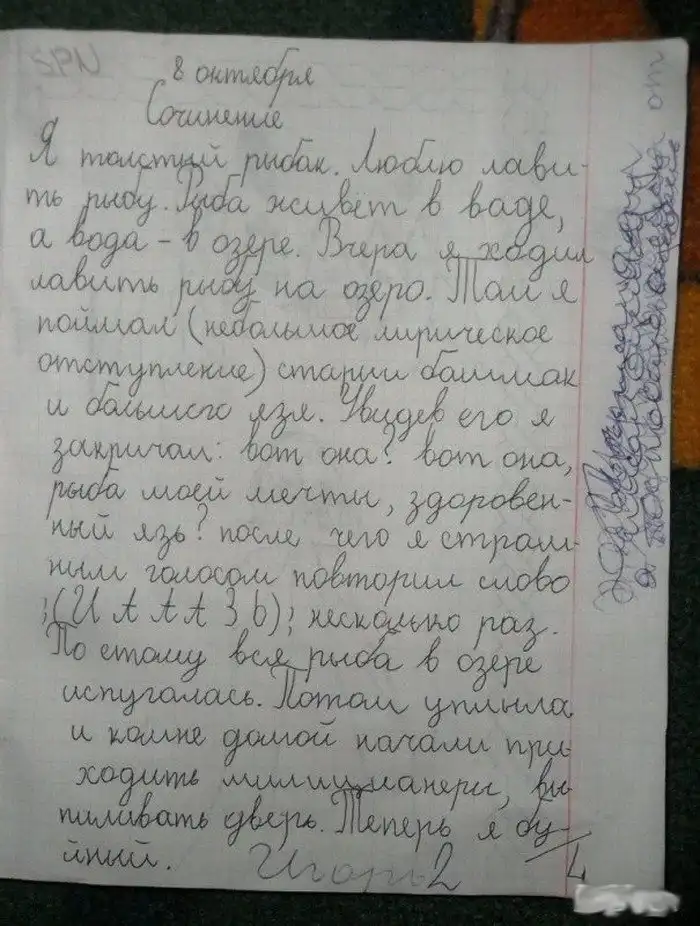 SPN
8 октября
Сочинение
Я толстый рыбак. Люблю лави-
ть рыбу. Рыба живёт в ваде,
а вода - в озере. Вчера я ходил
лавить рыбу на озеро. Там я
поймал (небольшое лирическое
отступление) старый башмак
и большого язя. Увидев его я
закричал: вот она? вот она,
рыба моей мечты, здоровен-
ный язь? после чего я страш-
ным голосом повторил слово
;(И А А А З Ь); несколько раз.
По етому вся рыба в озере
испугалась. Потом уплыла
и комне домой начали при-
ходить милицианеры, вы-
пиливать дверь. Теперь я бу-
йный.
Игорь 2
от